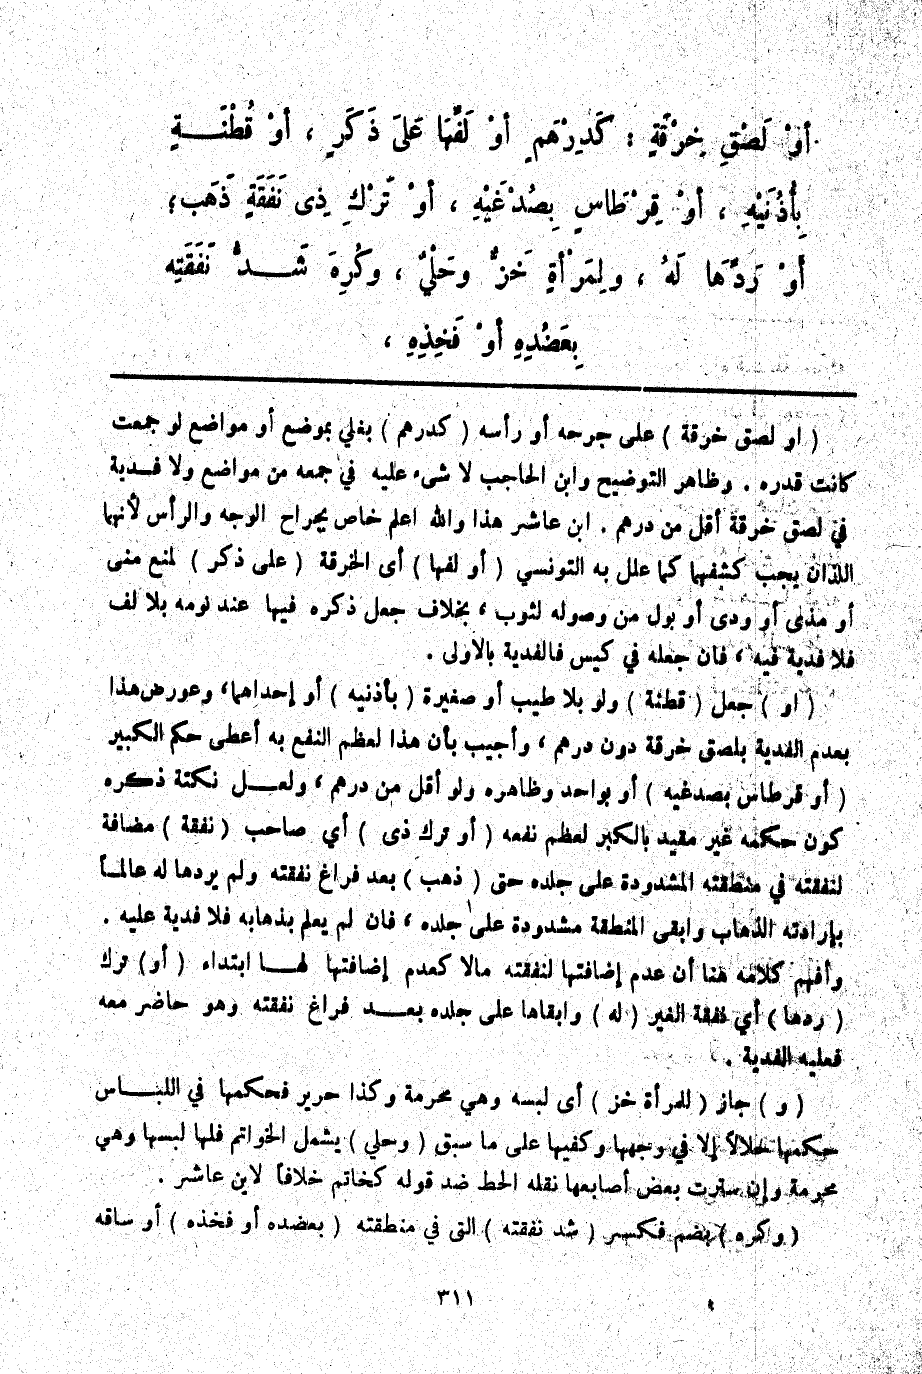 أوْ لَصْقِ خِرْقَةٍ : كَدِرْهَمٍ أوْ لَفِّهَا عَلَى ذَكَرٍ ، أوْ قُطْنَــةٍ
بِأُذُنَيْهِ ، أوْ قِرْطَاسٍ بِصُدْغَيْهِ ، أوْ تَرْكِ ذِى نَفَقَةٍ ذَهَب؛
أوْ رَدِّهَا لَهُ ، ولِمَرْأةٍ خَزٌّ وحَلْيٌ ، وكُرِهَ شَــدُّ نَفَقَتِه
بِعَضُدِهِ أوْ فَخِذِهِ ،
( او لصق خرقة ) على جرحه أو رأسه ( كدرهم ) بغلي بموضع أو مواضع لو جمعت
كانت قدره . وظاهر التوضيح وابن الحاجب لا شىء عليه في جمعه من مواضع ولا فــدية
في لصق خرقة أقل من درهم . ابن عاشر هذا والله اعلم خاص بجراح الوجه والرأس لأنهما
اللذان يجب كشفهما كما علل به التونسي ( أو لفها ) أى الخرقة ( على ذكر ) لمنع منى
أو مذى أو ودى أو بول من وصوله لثوب ، بخلاف جعل ذكره فيها عند نومه بلا لف
فلا فدية فيه ، فان جعله في كيس فالفدية بالاولى .
( او ) جعل ( قطنة ) ولو بلا طيب أو صغيرة ( بأذنيه ) أو إحداهما، وعورض هذا
بعدم الفدية بلصق خرقة دون درهم ، وأجيب بأن هذا لعظم النفع به أعطى حكم الكبير
( أو قرطاس بصدغيه ) أو بواحد وظاهره ولو أقل من درهم ، ولعــل نكتة ذكره
كون حكمه غير مقيد بالكبر لعظم نفعه ( أو ترك ذى ) أي صاحب ( نفقة ) مضافة
لنفقته في منطقته المشدودة على جلده حق ( ذهب ) بعد فراغ نفقته ولم يردها له عالمــا
بإرادته الذهاب وابقى المنطقة مشدودة على جلده ، فان لم يعلم بذهابه فلا فدية عليه .
وأفهم كلامه هنا أن عدم إضافتها لنفقته مالا كعدم إضافتها لهــا ابتداء ( أو ) ترك
( ردها ) أي نفقة الغير ( له ) وابقاها على جلده بعــد فراغ نفقته وهو حاضر معه
فعليه الفدية .
( و ) جاز ( للمرأة خز ) أى لبسه وهي محرمة وكذا حرير فحكمها في اللبــاس
حكمها حلالاً إلا في وجهها وكفيها على ما سبق ( وحلي ) يشمل الخواتم فلها لبسها وهي
محرمة وإن سترت بعض أصابعها نقله الحط ضد قوله كخاتم خلافاً لابن عاشر .
( وكره ) بضم فكسر ( شد نفقته ) التى في منطقته ( بعضده أو فخذه ) أو ساقه
٣١١